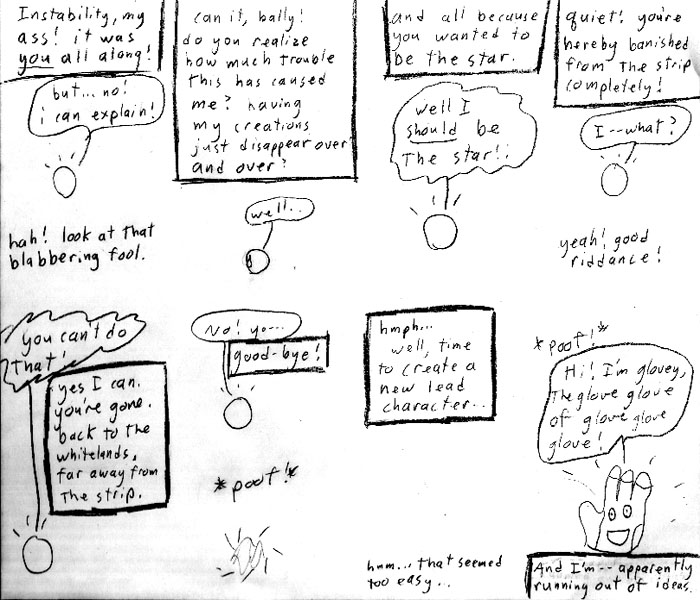 Instability, my
ass! it was
you all along!
but... no!
i can explain!
hah! look at that
blabbering fool.
can it, bally!
do you realize
how much trouble
this has caused
me? having
my creations
just disappear over
and over?
well...
and all because
you wanted to
be the star.
well I
should be
The star!!
quiet! you're
hereby banished
from the strip
completely!
I--what?
yeah! good
riddance!
you can't do
that!
yes I can.
you're gone.
back to the
whitelands,
far away from
the strip.
No! yo---
good-bye!
*poof!*
hmph...
well, time
to create a
new lead
character...
hmm... that seemed
too easy...
*poof!*
Hi! I'm glovey,
The glove glove
of glove glove
glove!
And I'm-- apparently
running out of ideas.